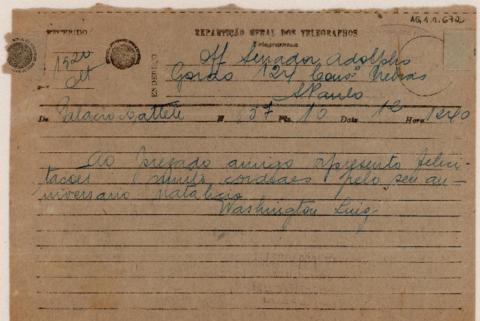 AG.1.1.672
RECEBIDO
REPARTIÇÃO GERAL DOS TELEGRAPHOS
Telegramma
ENDEREÇO
1920
Off Senador Adolpho
Gordo 124 Cons. Nebias
S Paulo
De Palacio Cattete N. 87 Pls. 10 Data 12 Hora 1240
Ao presado amigo apresento felici-
tacoes muito cordeaes pelo seu an-
niversario natalicio
Washington Luiz